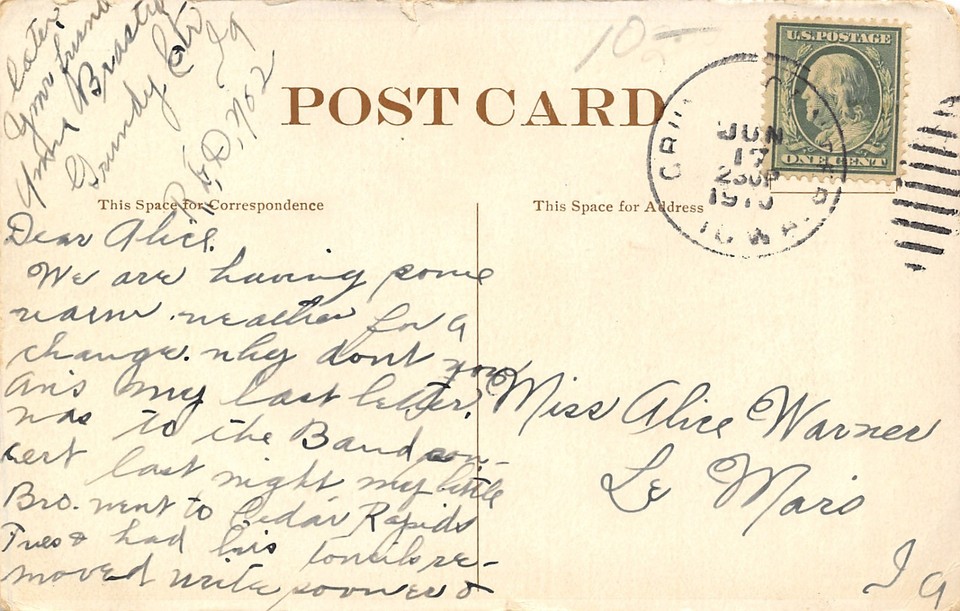 10-
U.S. POSTAGE
ONE CENT
POST CARD
JUN
17
230P
1910
IOWA
This Space for Correspondence
This Space for Address
Dear Alice.
We are having some
warm weather for a
change. why dont you
ans my last letter?
was to the Band con-
cert last night my little
Bro. went to Cedar Rapids
Tues & had his tonsils re-
moved write sooner &
later
Your friend
Grundy Ctr
Ia
R.F.D. No 2
Miss Alice Warner
Le Mars
Ia